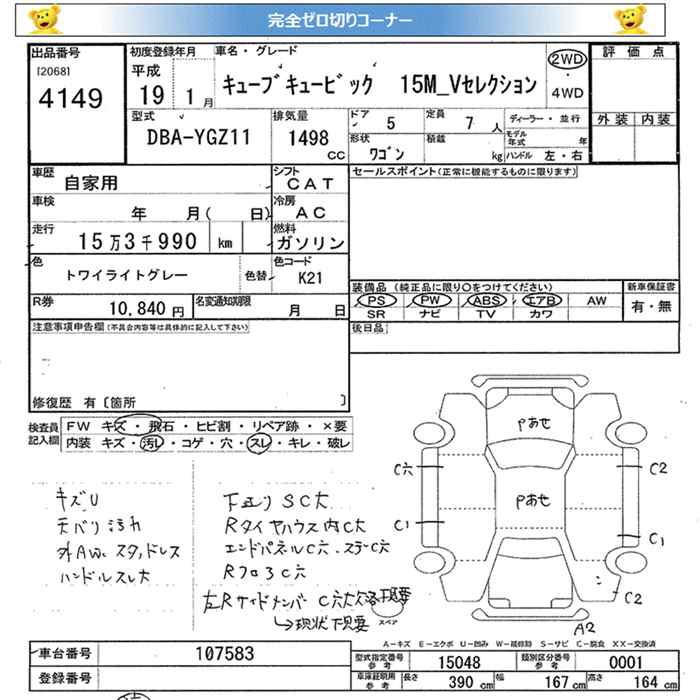 完全ゼロ切りコーナー
出品番号
[2068]
4149
初度登録年月
平成
19 1月
車名・グレード
キューブキュービック 15M_Vセレクション
2WD
・
4WD
評価点
外装 内装
型式
DBA-YGZ11
排気量
1498
CC
ドア
5
定員
7人
形状
ワゴン
積載
kg
ディーラー・並行
モデル年式 年
ハンドル 左・右
車歴
自家用
シフト
CAT
車検
年 月( 日)
冷房
AC
走行
15万3千990 km
燃料
ガソリン
色
トワイライトグレー
色替
色コード
K21
R券
10,840円
名変通知期限
月 日
セールスポイント(正常に機能するものに限ります)
装備品(純正品に限り○をつけてください)
PS PW ABS エアB AW
SR ナビ TV カワ
新車保証書
有・無
後日品
注意事項申告欄(不具合内容等は具体的に記入して下さい)
修復歴 有〔箇所 〕
検査員記入欄
FW キズ・飛石・ヒビ割・リペア跡・×要
内装 キズ・汚レ・コゲ・穴・スレ・キレ・破レ
キズU
天バリ汚れ
外AW.スタッドレス
ハンドルスレ大
下廻りSC大
Rタイヤハウス内C大
エンドパネルC穴.ステーC穴
RフロアC穴
左Rサイドメンバー C穴大
→現状下見要
Pあせ
Pあせ
C穴
C2
C1
C1
C2
A2
スペア
A-キズ E-エクボ U-凹み W-補修跡 S-サビ C-腐食 XX-交換済
車台番号
107583
登録番号
型式指定番号
参考
15048
類別区分番号
参考
0001
車庫証明用
参考
長さ 390cm 幅 167cm 高さ 164cm